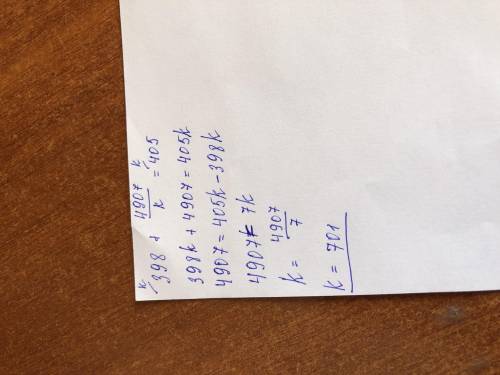 k/ 398 + 4907/k = k/ 405
398k + 4907 = 405k
4907 = 405k - 398k
4907 = 7k
k = 4907/7
k = 701